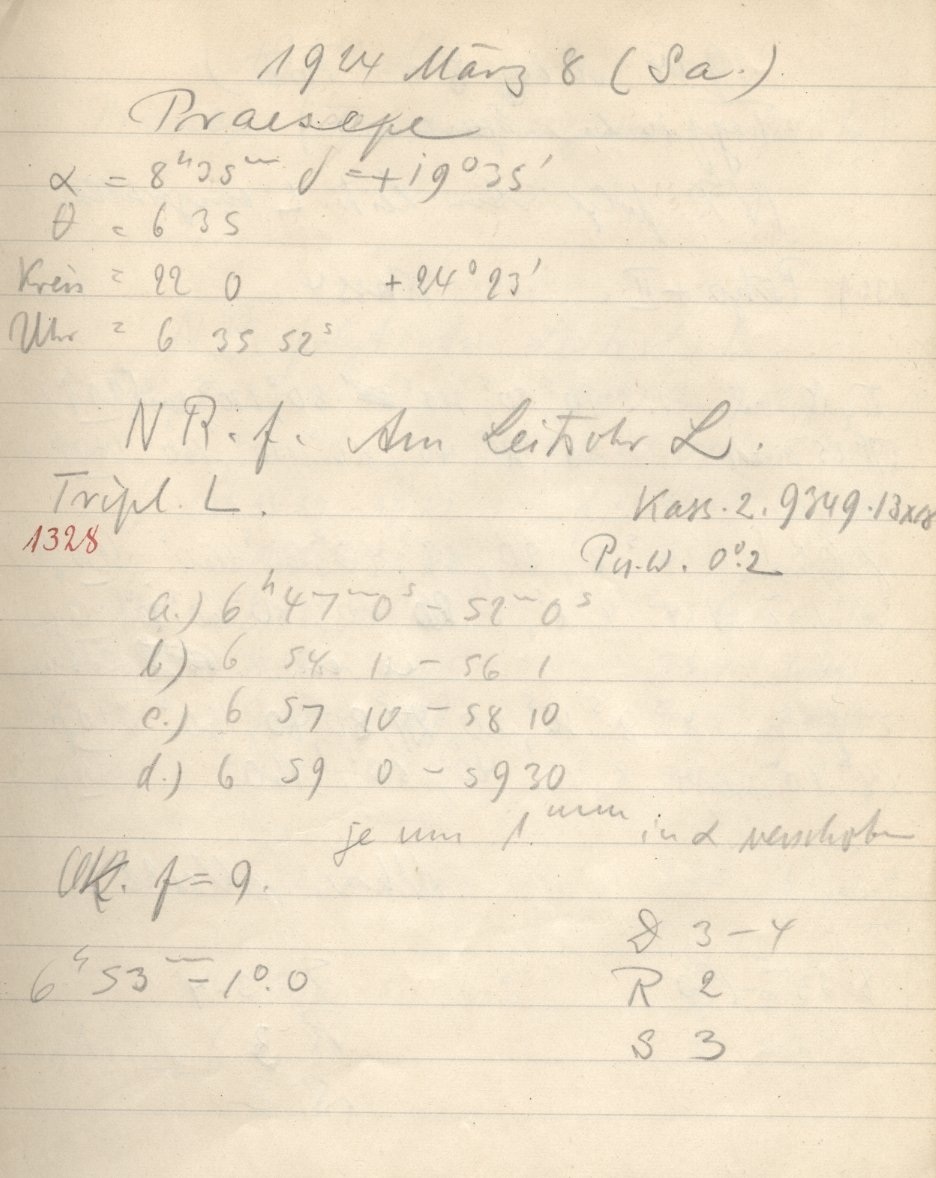 1924 März 8 (Sa.)
Praesepe
α = 8ʰ35ᵐ δ = +19°35'
θ = 6 35
Kreis = 22 0 +24°23'
Uhr = 6 35 52ˢ
N R. f. Am Leitrohr L.
Tripl. L. Kass. 2. 9349. 13x18
1328
Pos.W. 0°.2
a.) 6ʰ47ᵐ0ˢ – 52ᵐ0ˢ
b.) 6 54 1 – 56 1
c.) 6 57 10 – 58 10
d.) 6 59 0 – 59 30
je um 1ᵐᵐ in α verschoben
f = 9.
D 3–4
6ʰ53ᵐ –1°.0
R 2
S 3